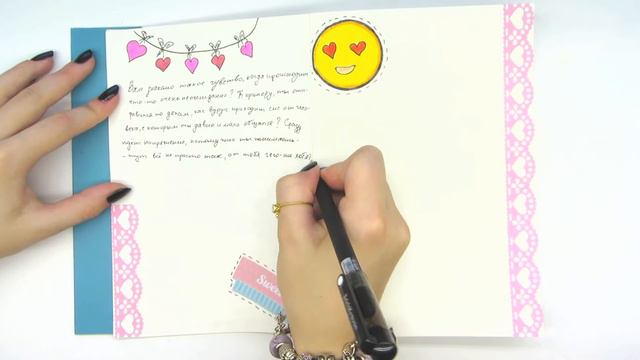 Вам знакомо такое чувство, когда происходит
что-то очень неожиданно? К примеру, ты отп-
равился по делам, как вдруг приходит смс от чело-
века, с которым ты давно и мало общался? Сразу
идет напряжение, потому что ты понимаешь
- тут всё не просто так, от тебя чего-то
Sweet